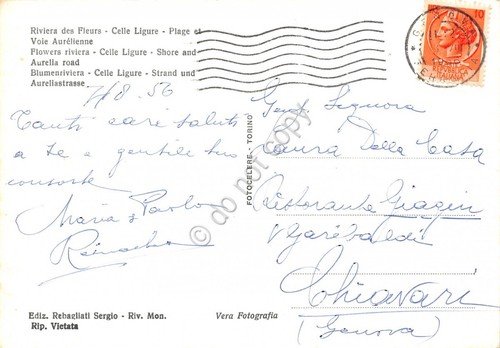 Riviera des Fleurs - Celle Ligure - Plage et
Voie Aurélienne
Flowers riviera - Celle Ligure - Shore and
Aurelia road
Blumenriviera - Celle Ligure - Strand und
Aureliastrasse
7/8.56
Tanti cari saluti
a te e gentile tuo
consorte
Maria e Paolo
FOTOCELERE - TORINO
do not copy
10
Gent. Signora
Laura Della Casa
Ristorante
V Garibaldi
Chiavari
(Genova)
Ediz. Rebagliati Sergio - Riv. Mon.
Rip. Vietata
Vera Fotografia